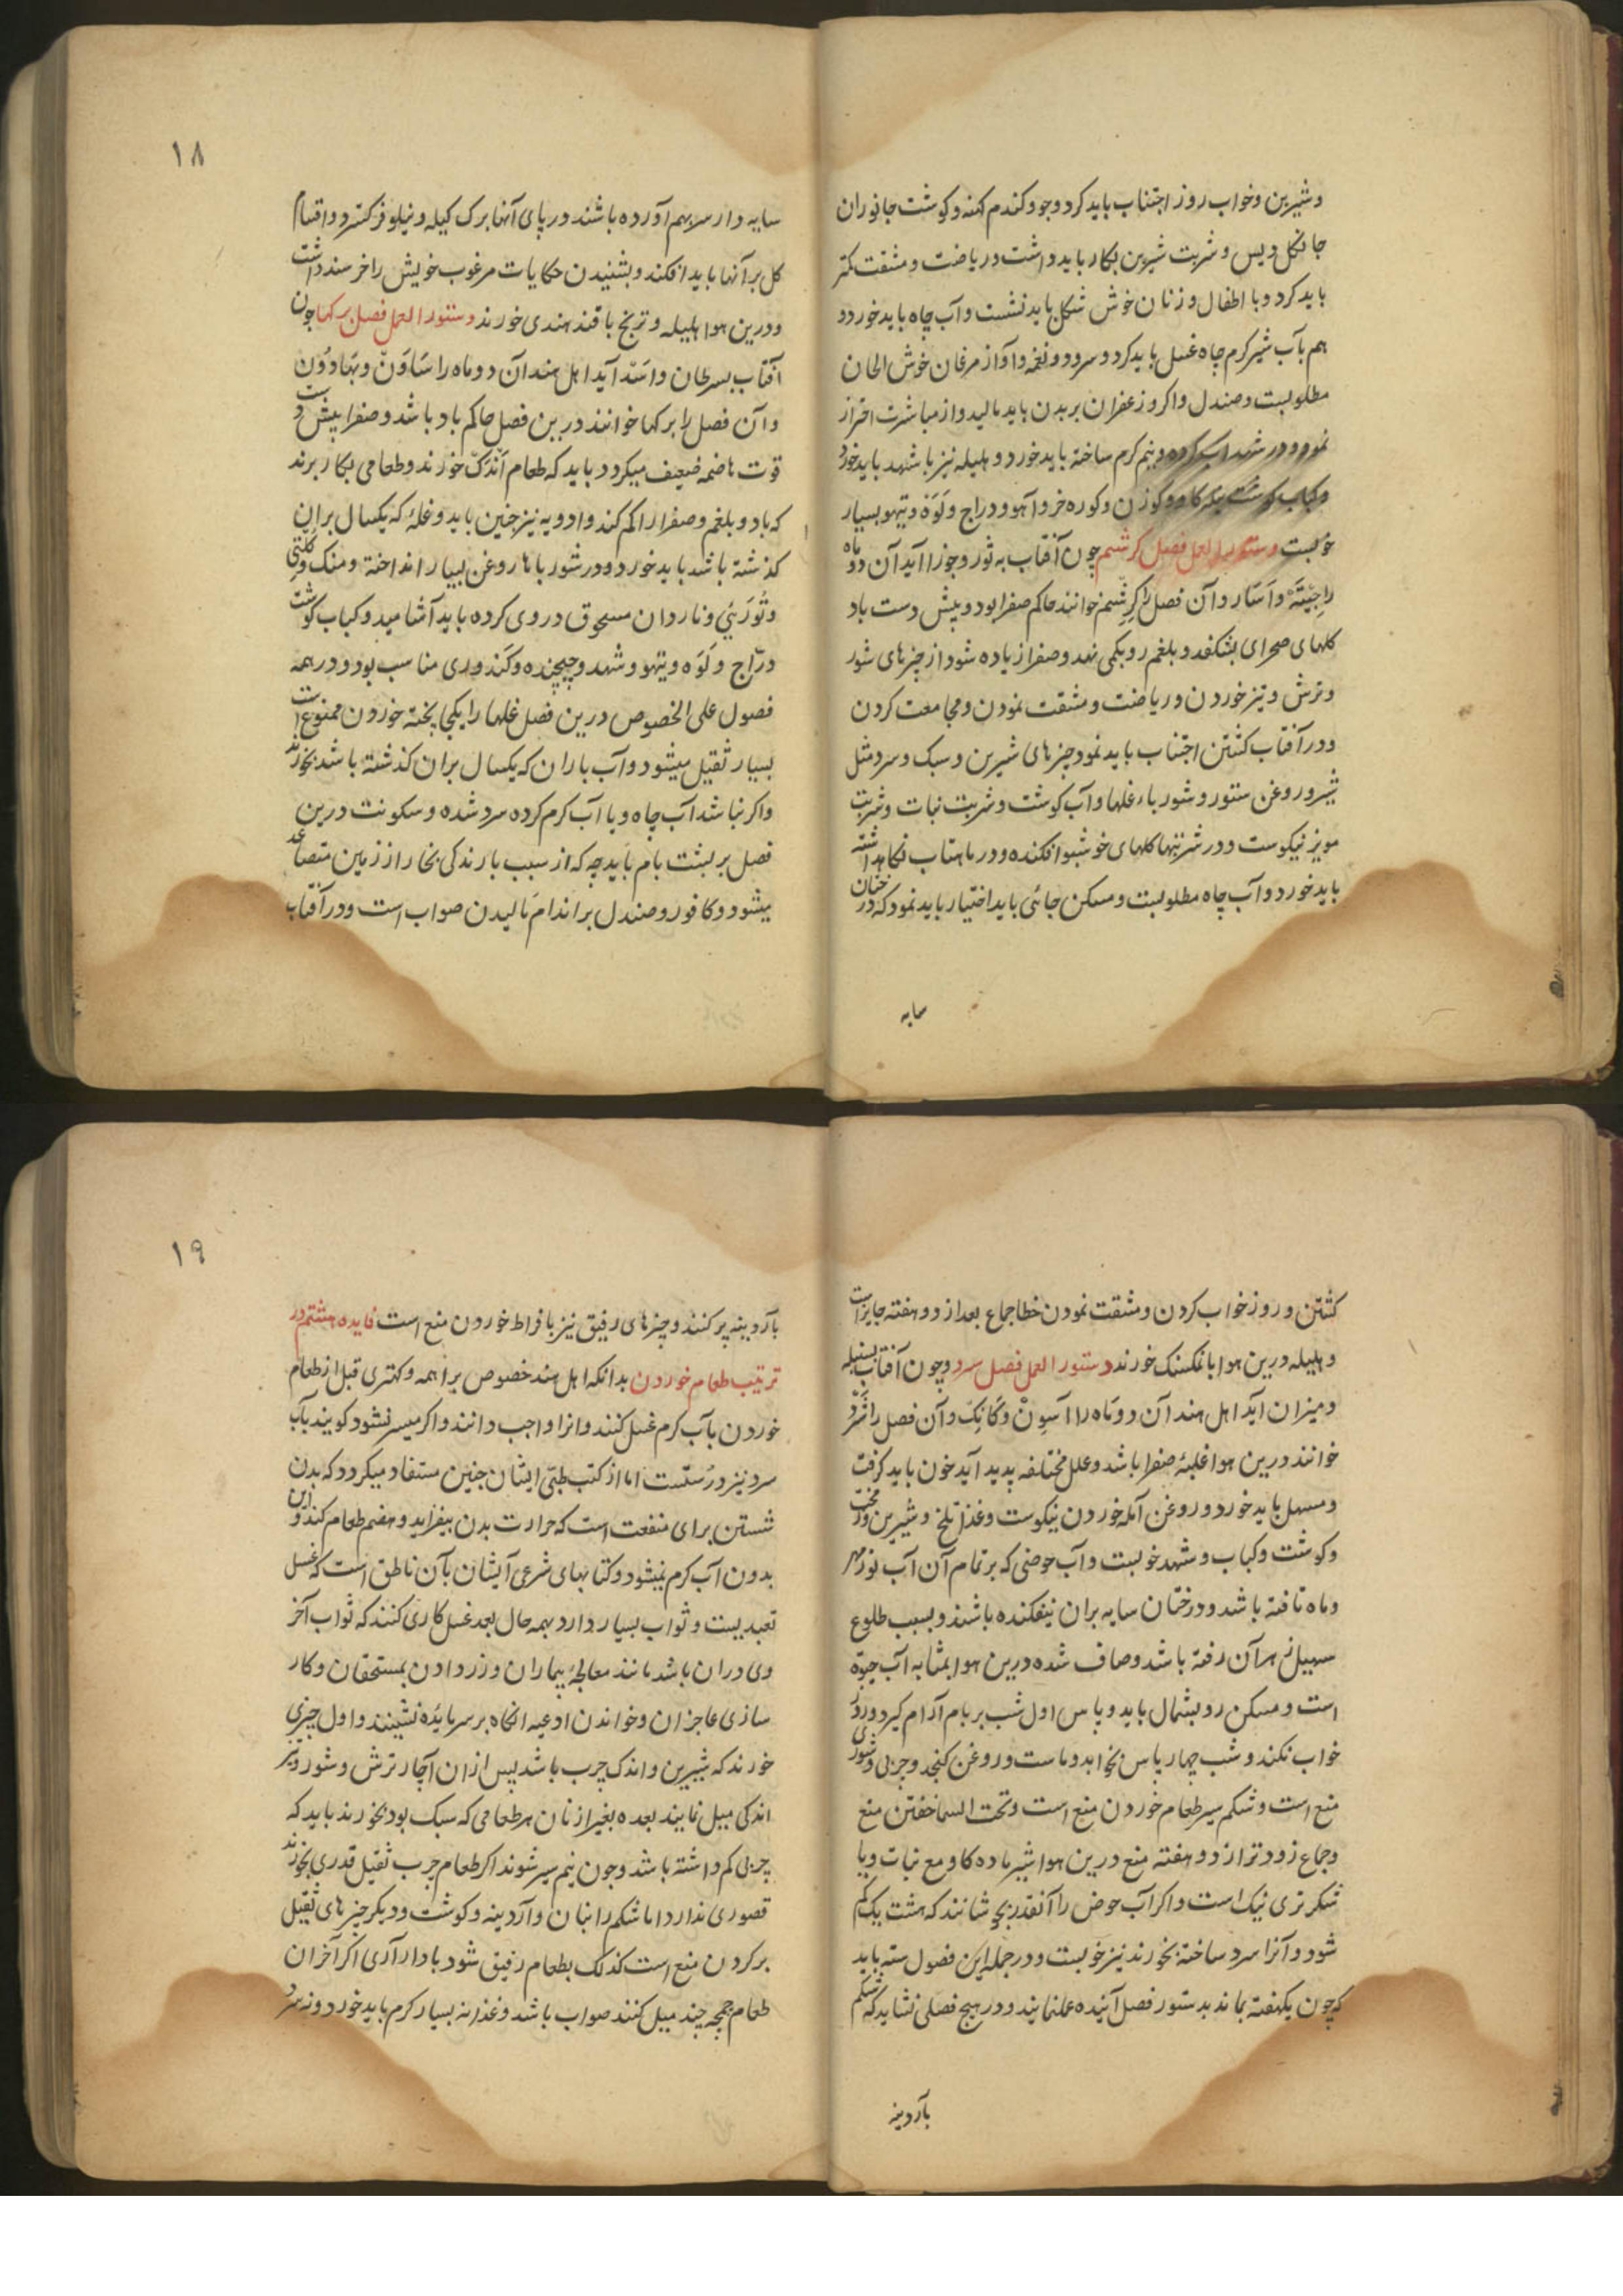 و شیرین و خواب روز اجتناب باید کرد و جو و کندم کهنه و کوشت جانوران
جانکل دیس و شربت شیرین بکار باید داشت و ریاضت و مشقت کمتر
باید کرد و با اطفال و زنان خوش شکل باید نشست و آب چاه باید خورد و
هم بآب شیر کرم چاه غسل باید کرد و سرود و نغمه و آواز مرغان خوش الحان
مطلوبست و صندل و اکر و زعفران بر بدن باید مالید و از مباشرت احتراز
نمود و در شهد آب کرده و نیم کرم ساخته باید خورد و هلیله نیز با شهد باید خورد
و کباب کوشت و کوزن و کوره خر و آهو و دراج و لَوَه و تیهو بسیار
خوبست دستور العمل فصل کرشم چون آفتاب به ثور و جوزا آید آن دو ماه
را جیته و اسار و آن فصل را کرشم خوانند حاکم صفرا بود و پیش دست باد
کلهای صحرای بشکفد و بلغم رو بکمی نهد و صفرا زیاده شود از چیزهای شور
و ترش و تیز خوردن و ریاضت و مشقت نمودن و مجامعت کردن
و در آفتاب کشتن اجتناب باید نمود چیزهای شیرین و سبک و سرد مثل
شیر و روغن ستور و شورباء غلها و آب کوشت و شربت نبات و شربت
مویز نیکوست و در شربتها کلهای خوشبو افکنده و در ماهتاب نکاهداشته
باید خورد و آب چاه مطلوبست و مسکن جائی باید اختیار باید نمود که درختان
سایه
۱۸
سایه دار سر بهم آورده باشند در پای آنها برک کیله و نیلوفر کسترد و اقسام
کل بر آنها باید افکند و بشنیدن حکایات مرغوب خویش را خرسند داشت
و درین هوا هلیله و ترنج با قند هندی خورند دستور العمل فصل برکها چون
آفتاب بسرطان و اسد آید اهل هند آن دو ماه را ساوَن و بهادون
و آن فصل را برکها خوانند درین فصل حاکم باد باشد و صفرا پیش دست و
قوت هاضمه ضعیف میکردد باید که طعام اندک خورند و طعامی بکار برند
که باد و بلغم و صفرا را کم کند و ادویه نیز چنین باید و غلهٔ که یکسال بران
کذشته باشد باید خورد و در شورباها روغن بسیار انداخته و منک و کلتی
و تورنی و ناردان مسحوق در وی کرده باید آشامید و کباب کوشت
درّاج و لَوَه و تیهو و شهد و چچنده و کندوری مناسب بود و در همه
فصول علی الخصوص درین فصل غلها را یکجا پخته خوردن ممنوع است
بسیار ثقیل میشود و آب باران که یکسال بران کذشته باشد بخورند
و اکر نباشد آب چاه و یا آب کرم کرده سرد شده و سکونت درین
فصل بر پشت بام باید چه که از سبب بارندکی بخار از زمین متصاعد
میشود و کافور و صندل بر اندام مالیدن صواب است و در آفتاب
کشتن و روز خواب کردن و مشقت نمودن خطا جماع بعد از دو هفته جایز است
و هلیله درین هوا با نمکسنک خورند دستور العمل فصل سرد و چون آفتاب بسنبله
و میزان آید اهل هند آن دو ماه را آسون و کاتک و آن فصل را سرد
خوانند درین هوا غلبهٔ صفرا باشد و علل مختلفه پدید آید خون باید کرفت
و مسهل باید خورد و روغن آمله خوردن نیکوست و غذا تلخ و شیرین و
و کوشت و کباب و شهد خوبست و آب حوضی که بر تمام آن آب نور مهر
و ماه تافته باشد و درختان سایه بران نیفکنده باشند و بسبب طلوع
سهیل زهر آن رفته باشد و صاف شده درین هوا بمثابه آب حیوة
است و مسکن رو بشمال باید و پاس اول شب بر بام آرام کیرد و روز
خواب نکند و شب چهار پاس نخوابد و ماست و روغن کنجد و چربی و شوری
منع است و شکم سیر طعام خوردن منع است و تحت السما خفتن منع
و جماع زودتر از دو هفته منع درین هوا شیر ماده کاو مع نبات و یا
شکر تری نیک است و اکر آب حوض را آنقدر بجوشانند که هشت یک کم
شود و آنرا سرد ساخته بخورند نیز خوبست و در جمله این فصول سته باید
که چون یکهفته بماند بدستور فصل آینده عمل نمایند و در هیچ فصلی نشاید که شکم
بآردینه
۱۹
بآردینه پر کنند و چیزهای رقیق نیز بافراط خوردن منع است فایده هشتم در
ترتیب طعام خوردن بدانکه اهل هند خصوص براهمه و کهتری قبل از طعام
خوردن بآب کرم غسل کنند و انرا واجب دانند و اکر میسر نشود کویند بآب
سرد نیز درست است اما از کتب طبی ایشان چنین مستفاد میکردد که بدن
شستن برای منفعت است که حرارت بدن بیفزاید و هضم طعام کند و این
بدون آب کرم نمیشود و کتابهای شرعی ایشان بآن ناطق است که غسل
تعبدیست و ثواب بسیار دارد بهمه حال بعد غسل کاری کنند که ثواب آخر
وی دران باشد مانند معالجهٔ بیماران و زر دادن بمستحقان و کار
سازی عاجزان و خواندن ادعیه انکاه بر سر مایده نشینند و اول چیزی
خورند که شیرین و اندک چرب باشد پس ازان آچار ترش و شور و تیز
اندکی میل نمایند بعده بغیر از نان هر طعامی که سبک بود بخورند باید که
چربی کم داشته باشد و چون نیم سیر شوند اکر طعام چرب ثقیل قدری بخورند
قصوری ندارد اما شکم را بنان و آردینه و کوشت و دیکر چیزهای ثقیل
پر کردن منع است کذلک بطعام رقیق شود بادار آری اکر آخر ان
طعام چمچه چند میل کنند صواب باشد و غذا نه بسیار کرم باید خورد و نه سرد